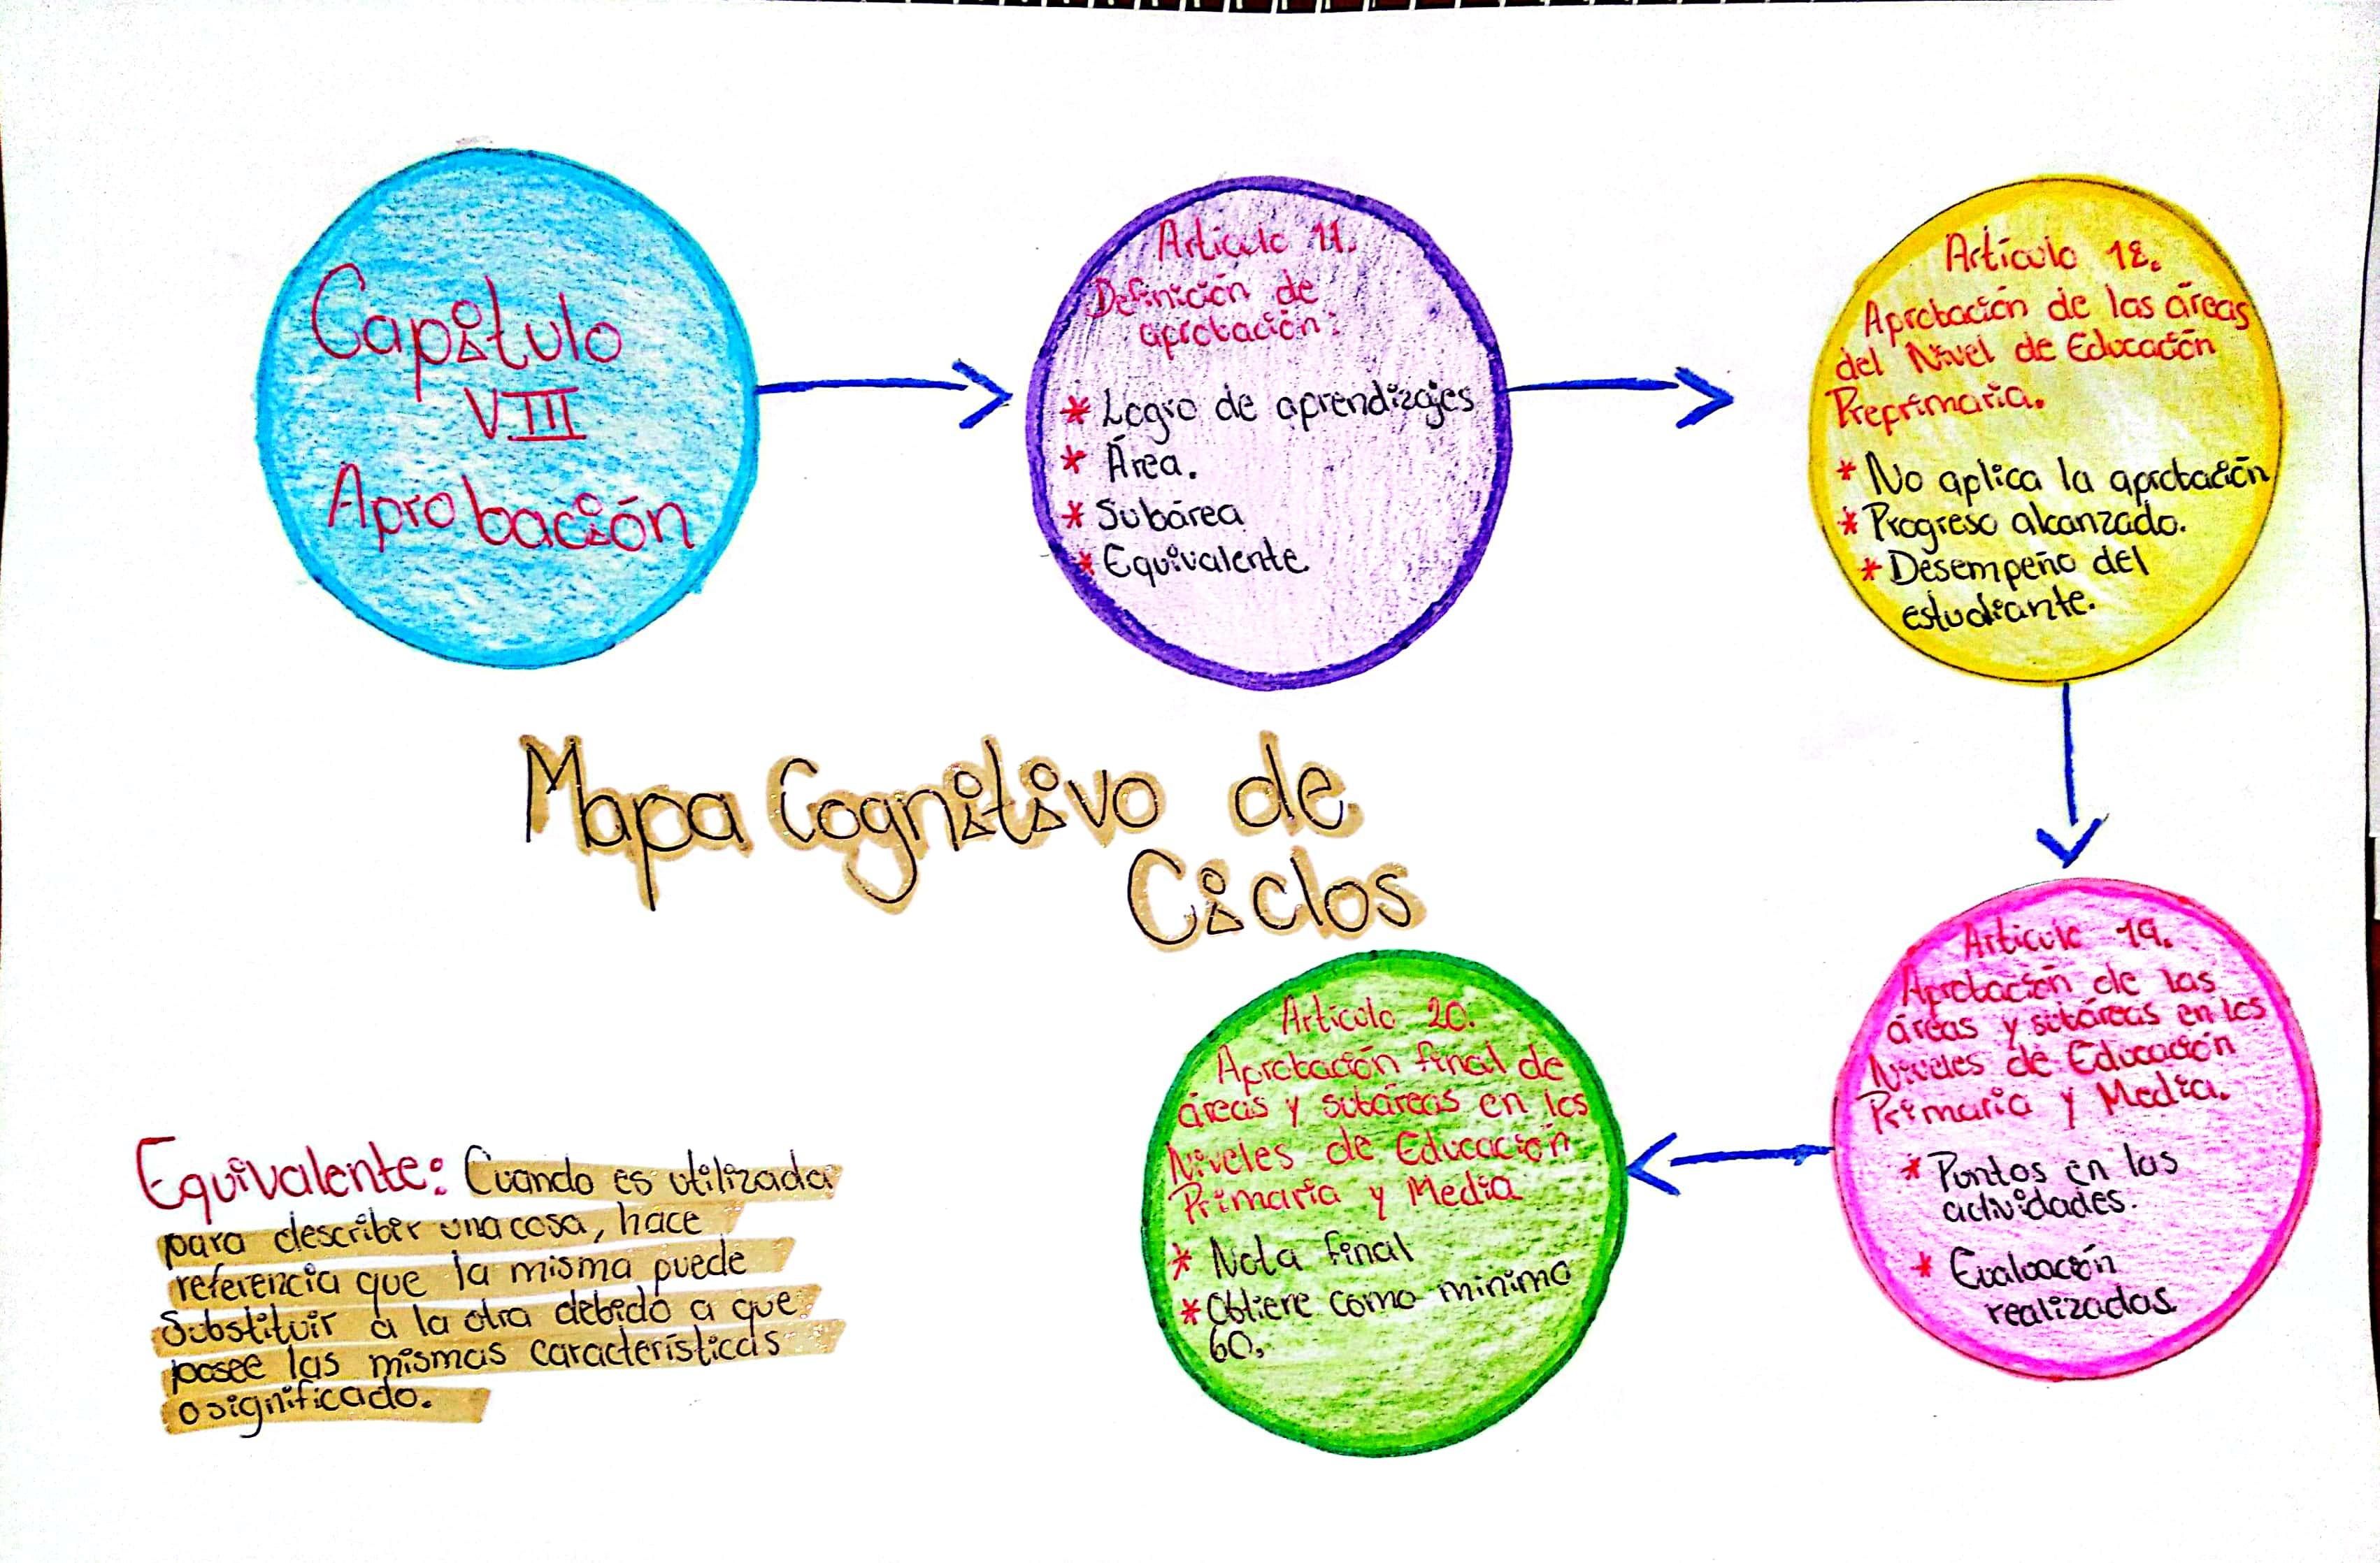 Capítulo
VIII
Aprobación
Artículo 17.
Definición de
aprobación:
* Logro de aprendizajes
* Área.
* Subárea
* Equivalente
Artículo 18.
Aprobación de las áreas
del Nivel de Educación
Preprimaria.
* No aplica la aprobación
* Progreso alcanzado.
* Desempeño del
estudiante.
Mapa Cognitivo de
Ciclos
Artículo 19.
Aprobación de las
áreas y subáreas en los
Niveles de Educación
Primaria y Media.
* Puntos en las
actividades.
* Evaluación
realizadas
Artículo 20.
Aprobación final de
áreas y subáreas en los
Niveles de Educación
Primaria y Media
* Nota final
* Obtiene como minimo
60.
Equivalente: Cuando es utilizada
para describir una cosa, hace
referencia que la misma puede
Substituir a la otra debido a que
posee las mismas características
o significado.